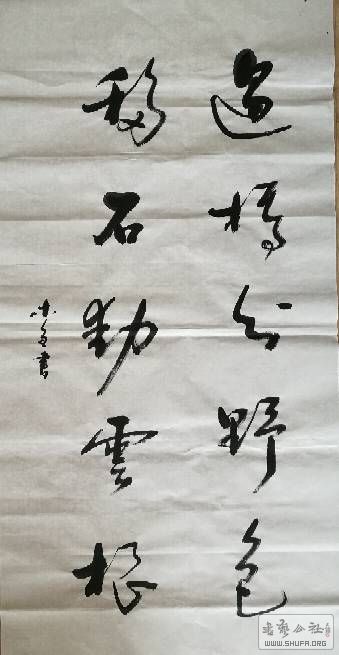 過橋分野色
移石動雲根
書藝公社
WWW.SHUFA.ORG